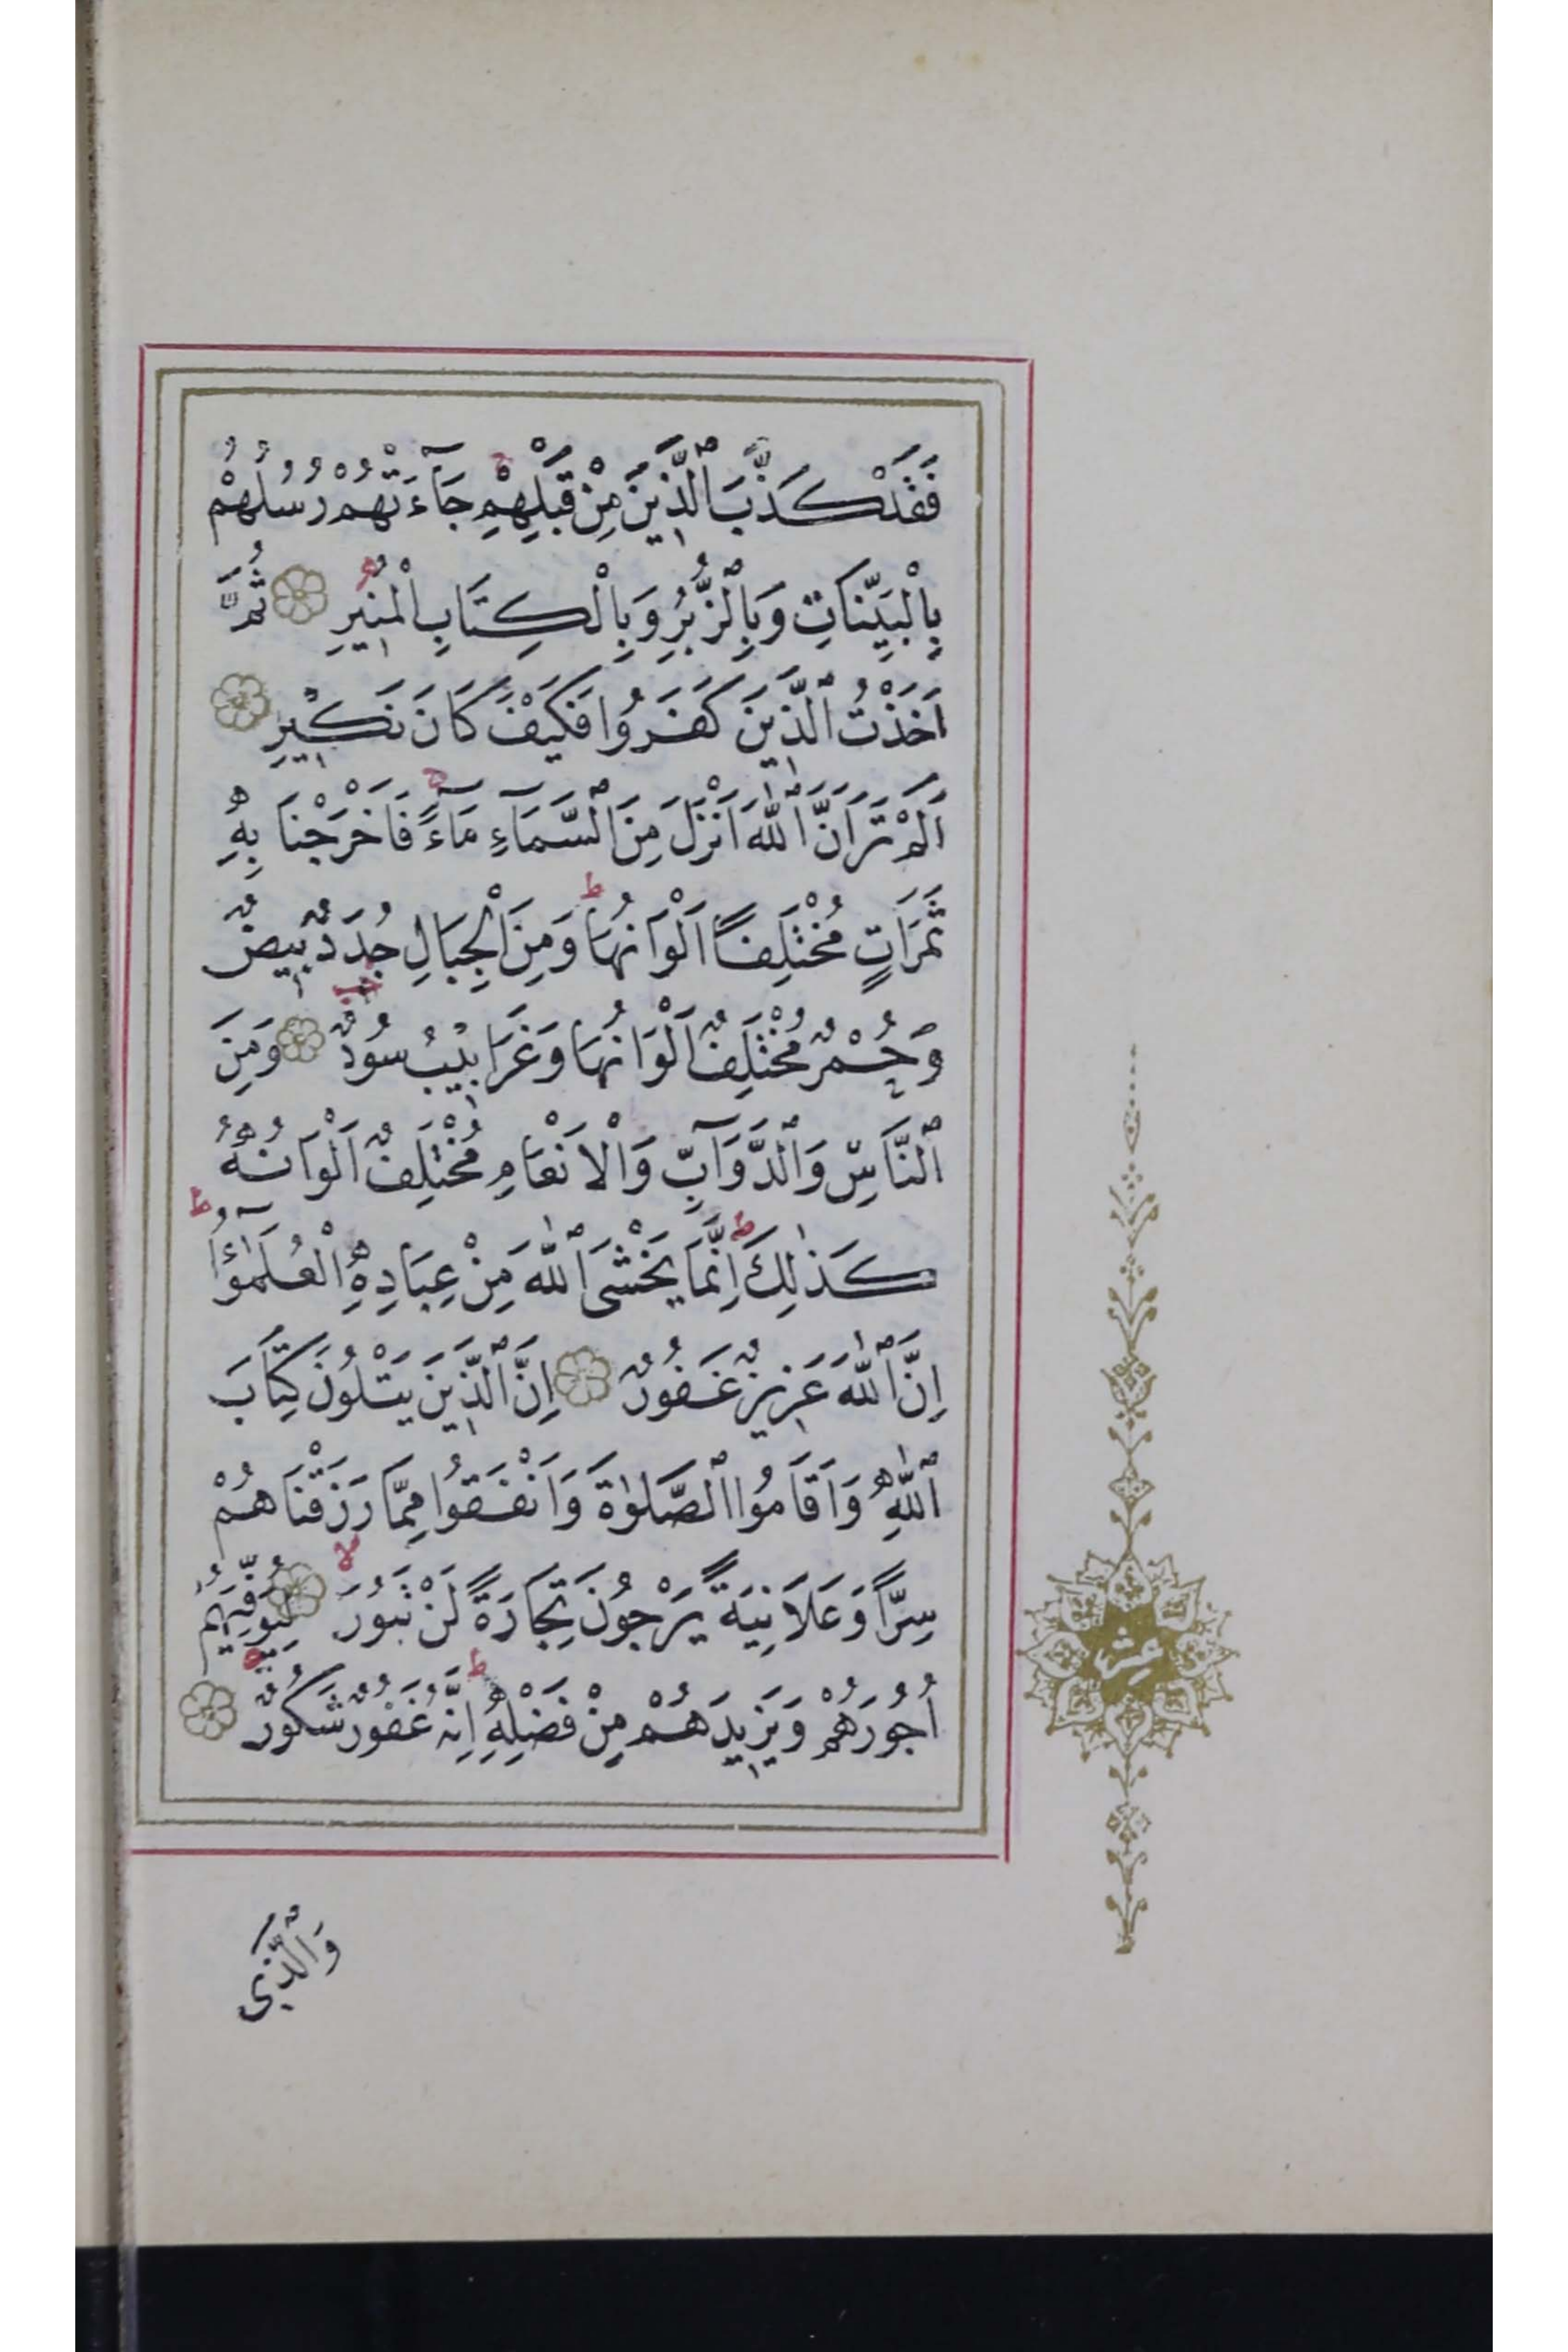 فَقَدْ كَذَّبَ ٱلَّذِينَ مِنْ قَبْلِهِمْ جَآءَتْهُمْ رُسُلُهُمْ
بِالْبَيِّنَاتِ وَبِٱلزُّبُرِ وَبِالْكِتَابِ الْمُنِيرِ ثُمَّ
اَخَذْتُ ٱلَّذِينَ كَفَرُوا فَكَيْفَ كَانَ نَكِيرِ
اَلَمْ تَرَ اَنَّ ٱللّٰهَ اَنْزَلَ مِنَ ٱلسَّمَآءِ مَآءً فَاَخْرَجْنَا بِهِ
ثَمَرَاتٍ مُخْتَلِفًا اَلْوَانُهَا ط وَمِنَ الْجِبَالِ جُدَدٌ بِيضٌ
وَحُمْرٌ مُخْتَلِفٌ اَلْوَانُهَا وَغَرَابِيبُ سُودٌ وَمِنَ
ٱلنَّاسِ وَٱلدَّوَآبِّ وَالْاَنْعَامِ مُخْتَلِفٌ اَلْوَانُهُ
كَذٰلِكَ ط اِنَّمَا يَخْشَى ٱللّٰهَ مِنْ عِبَادِهِ الْعُلَمٰٓؤُا ط
اِنَّ ٱللّٰهَ عَزِيزٌ غَفُورٌ اِنَّ ٱلَّذِينَ يَتْلُونَ كِتَابَ
ٱللّٰهِ وَاَقَامُوا ٱلصَّلٰوةَ وَاَنْفَقُوا مِمَّا رَزَقْنَاهُمْ
سِرًّا وَعَلَانِيَةً يَرْجُونَ تِجَارَةً لَنْ تَبُورَ لا لِيُوَفِّيَهُمْ
اُجُورَهُمْ وَيَزِيدَهُمْ مِنْ فَضْلِهِ ط اِنَّهُ غَفُورٌ شَكُورٌ
وَٱلَّذِى
عشر